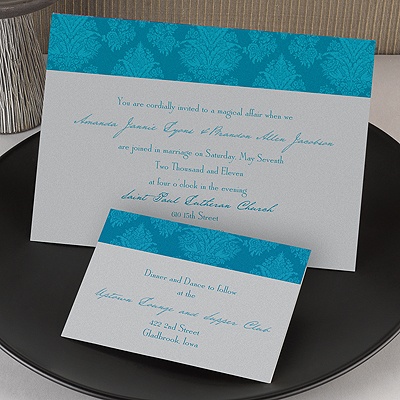 You are cordially invited to a magical affair when we
Amanda Jannie Lyons & Brandon Allen Jacobson
are joined in marriage on Saturday, May Seventh
Two Thousand and Eleven
at four o'clock in the evening
Saint Paul Lutheran Church
610 15th Street
Dinner and Dance to follow
at the
Uptown Lounge and Supper Club
422 2nd Street
Gladbrook, Iowa